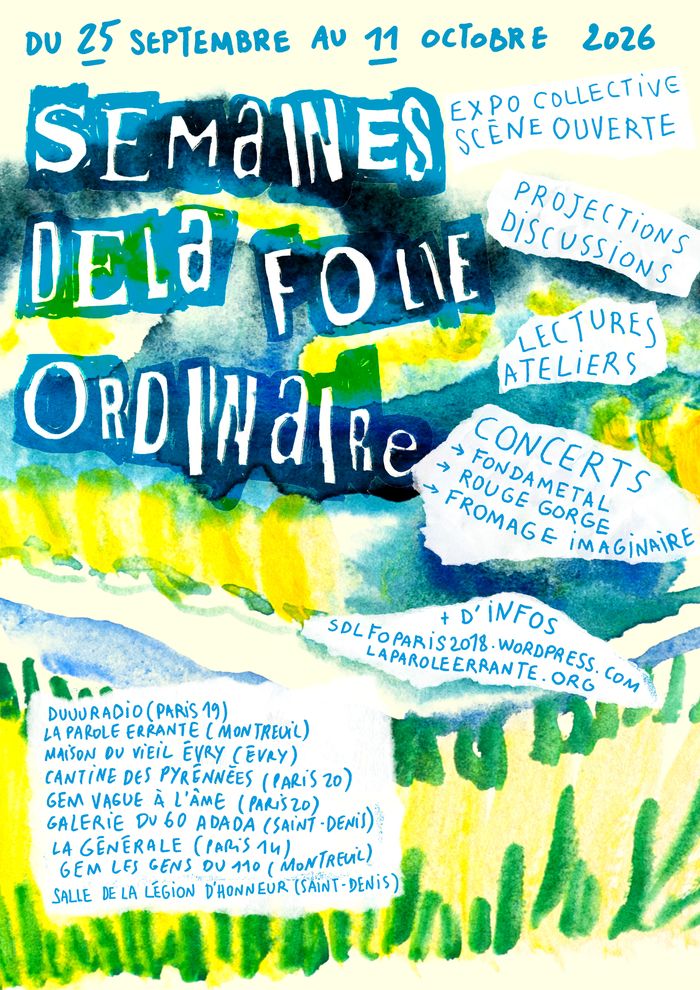 DU 25 SEPTEMBRE AU 11 OCTOBRE 2026
SEMaINES
DE La FOLIE
ORDINaIRe
EXPO COLLECTIVE
SCÈNE OUVERTE
PROJECTIONS
DISCUSSIONS
LECTURES
ATELIERS
CONCERTS
→ FONDAMETAL
→ ROUGE GORGE
→ FROMAGE IMAGINAIRE
+ D'INFOS
SDLFOPARIS2018.WORDPRESS.COM
LAPAROLEERRANTE.ORG
DUUURADIO (PARIS 19)
LA PAROLE ERRANTE (MONTREUIL)
MAISON DU VIEIL ÉVRY (ÉVRY)
CANTINE DES PYRÉNNÉES (PARIS 20)
GEM VAGUE À L'ÂME (PARIS 20)
GALERIE DU 60 ADADA (SAINT-DENIS)
LA GÉNÉRALE (PARIS 14)
GEM LES GENS DU 110 (MONTREUIL)
SALLE DE LA LÉGION D'HONNEUR (SAINT-DENIS)